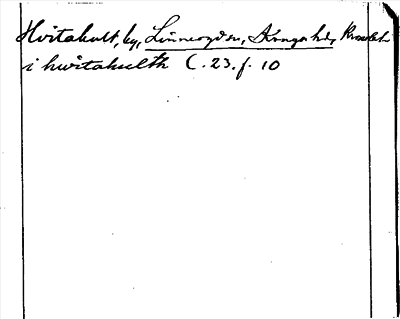 Hvitahult, by, Linneryds sn, Konga hd, Kronob. l.
i hwitahulth C. 23. f. 10